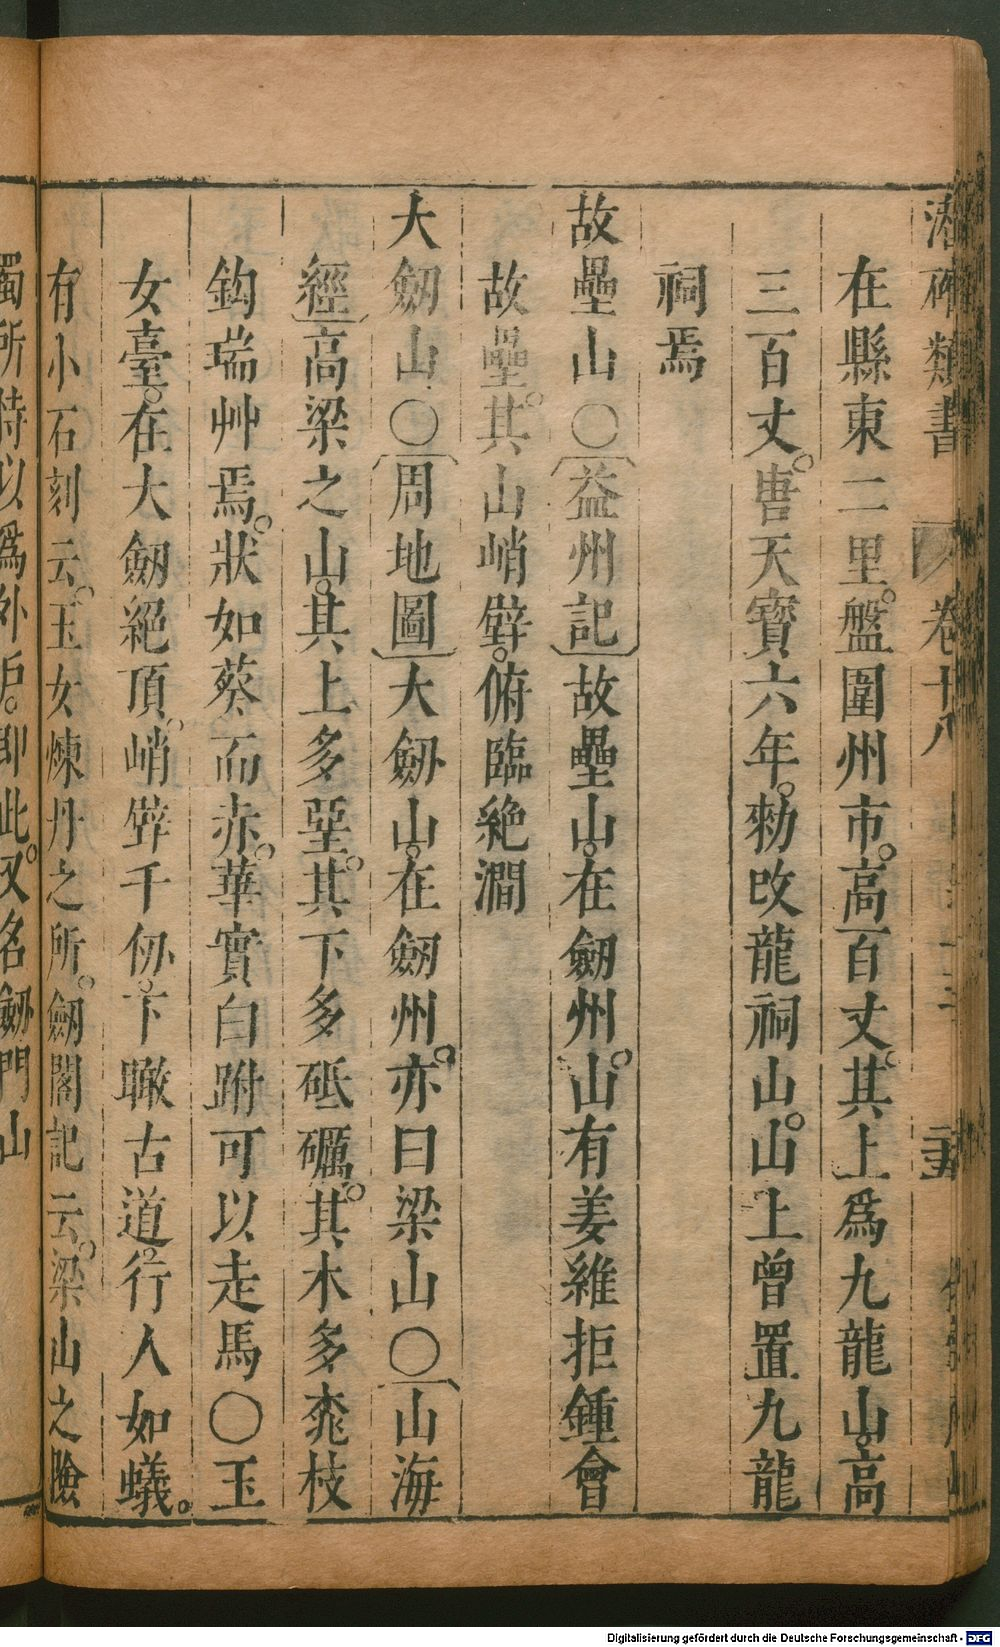 潛確類書 卷十八
在縣東二里。盤圍州市。高百丈。其上爲九龍山。高
三百丈。唐天寶六年。勑改龍祠山。山上曾置九龍
祠焉
故壘山〇益州記故壘山。在劒州。山有姜維拒鍾會
故壘。其山峭壁。俯臨絶澗
大劒山〇周地圖大劒山。在劒州。亦曰梁山〇山海
經高梁之山。其上多堊。其下多砥礪。其木多𣑯枝
鈎瑞艸焉。狀如葵而赤。華實白跗可以走馬〇玉
女臺。在大劒絕頂。峭壁千仭。下瞰古道。行人如蟻。
有小石刻云。玉女煉丹之所。劒閣記云。梁山之險
蜀所恃以爲外戶。即此。又名劒門山
Digitalisierung gefördert durch die Deutsche Forschungsgemeinschaft - DFG